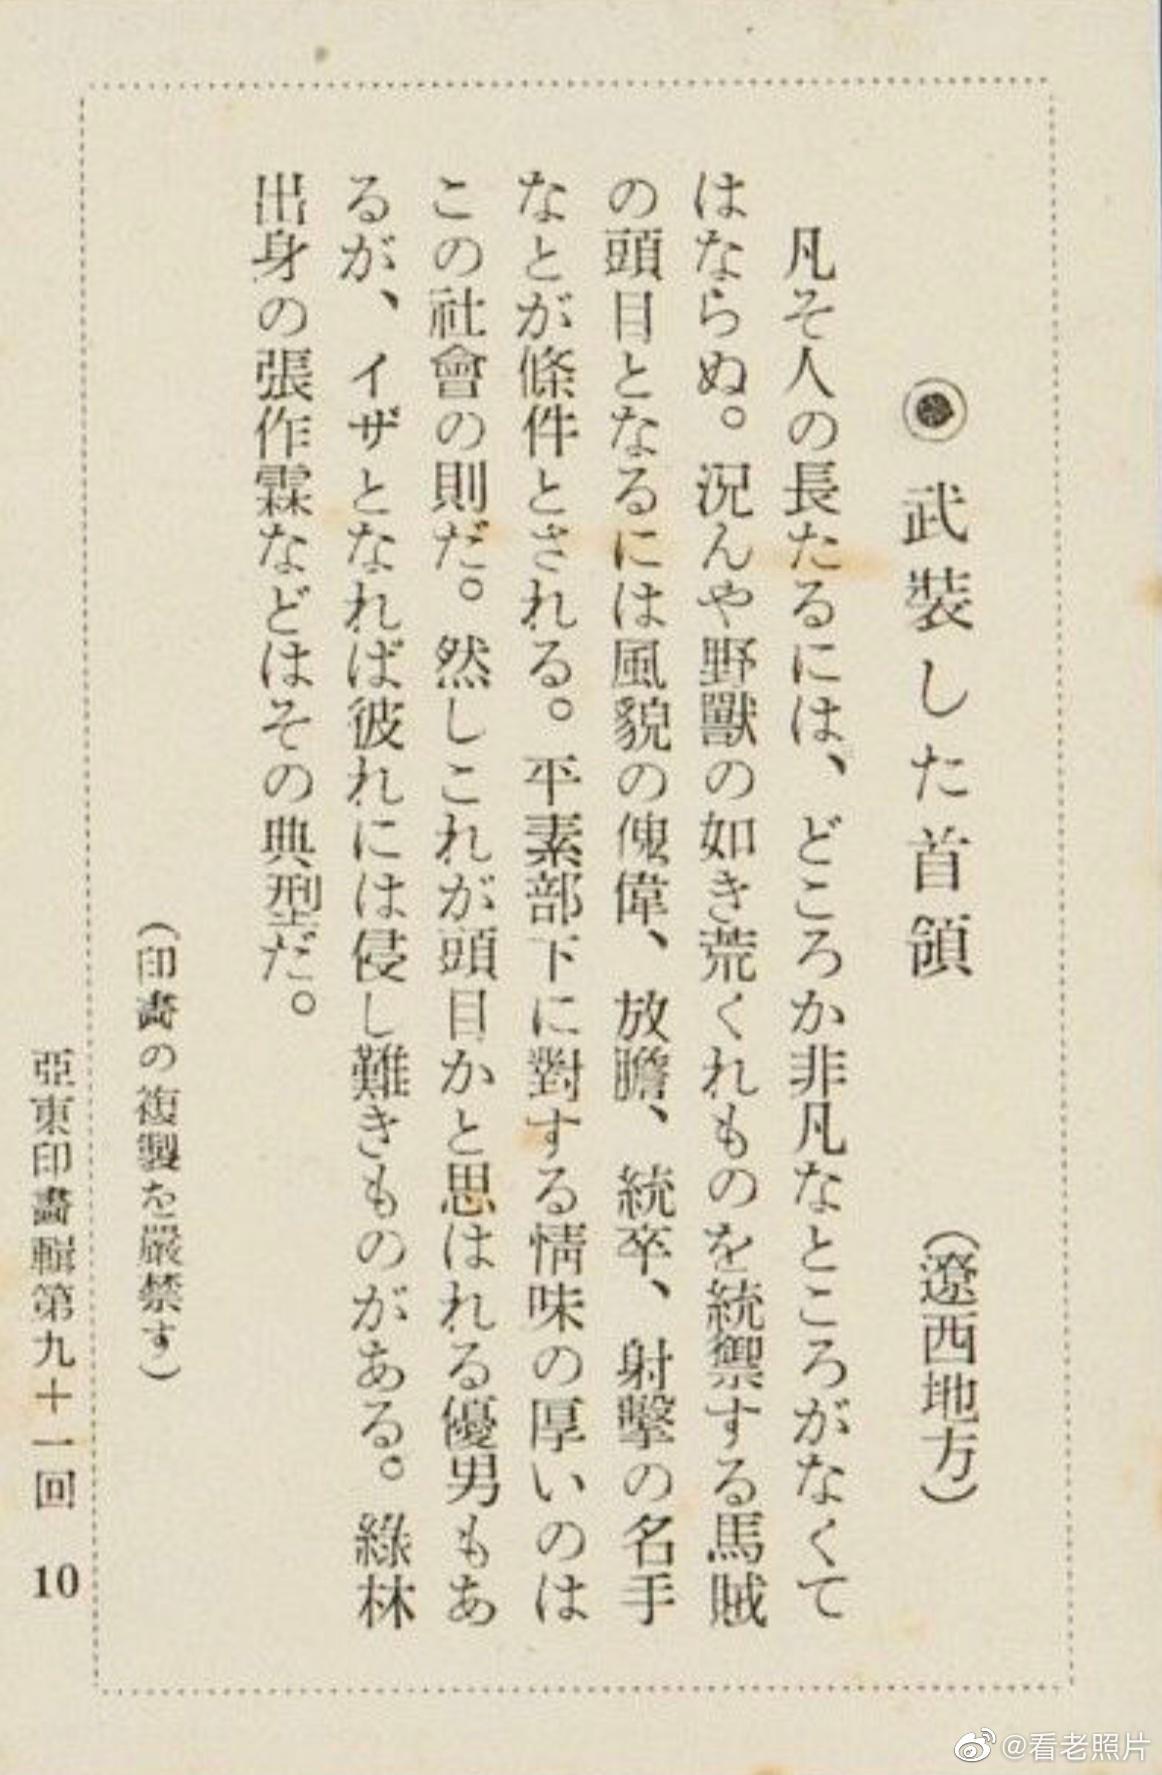 ◉武裝した首領　(遼西地方)
凡そ人の長たるには、どころか非凡なところがなくて
はならぬ。況んや野獸の如き荒くれものを統禦する馬賊
の頭目となるには風貌の傀偉、放膽、統卒、射擊の名手
なとが條件とされる。平素部下に對する情味の厚いのは
この社會の則だ。然しこれが頭目かと思はれる優男もあ
るが、イザとなれば彼れには侵し難きものがある。綠林
出身の張作霖などはその典型だ。
(印畵の複製を嚴禁す)
亞東印畵輯第九十一回　10
@看老照片